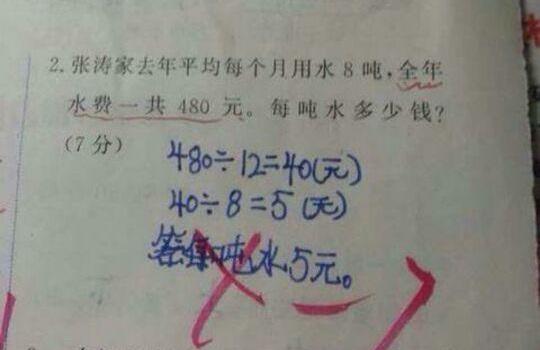 2. 张涛家去年平均每个月用水 8 吨,全年
水费一共 480 元。每吨水多少钱?
(7 分)
480÷12=40(元)
40÷8=5(元)
答每吨水5元。